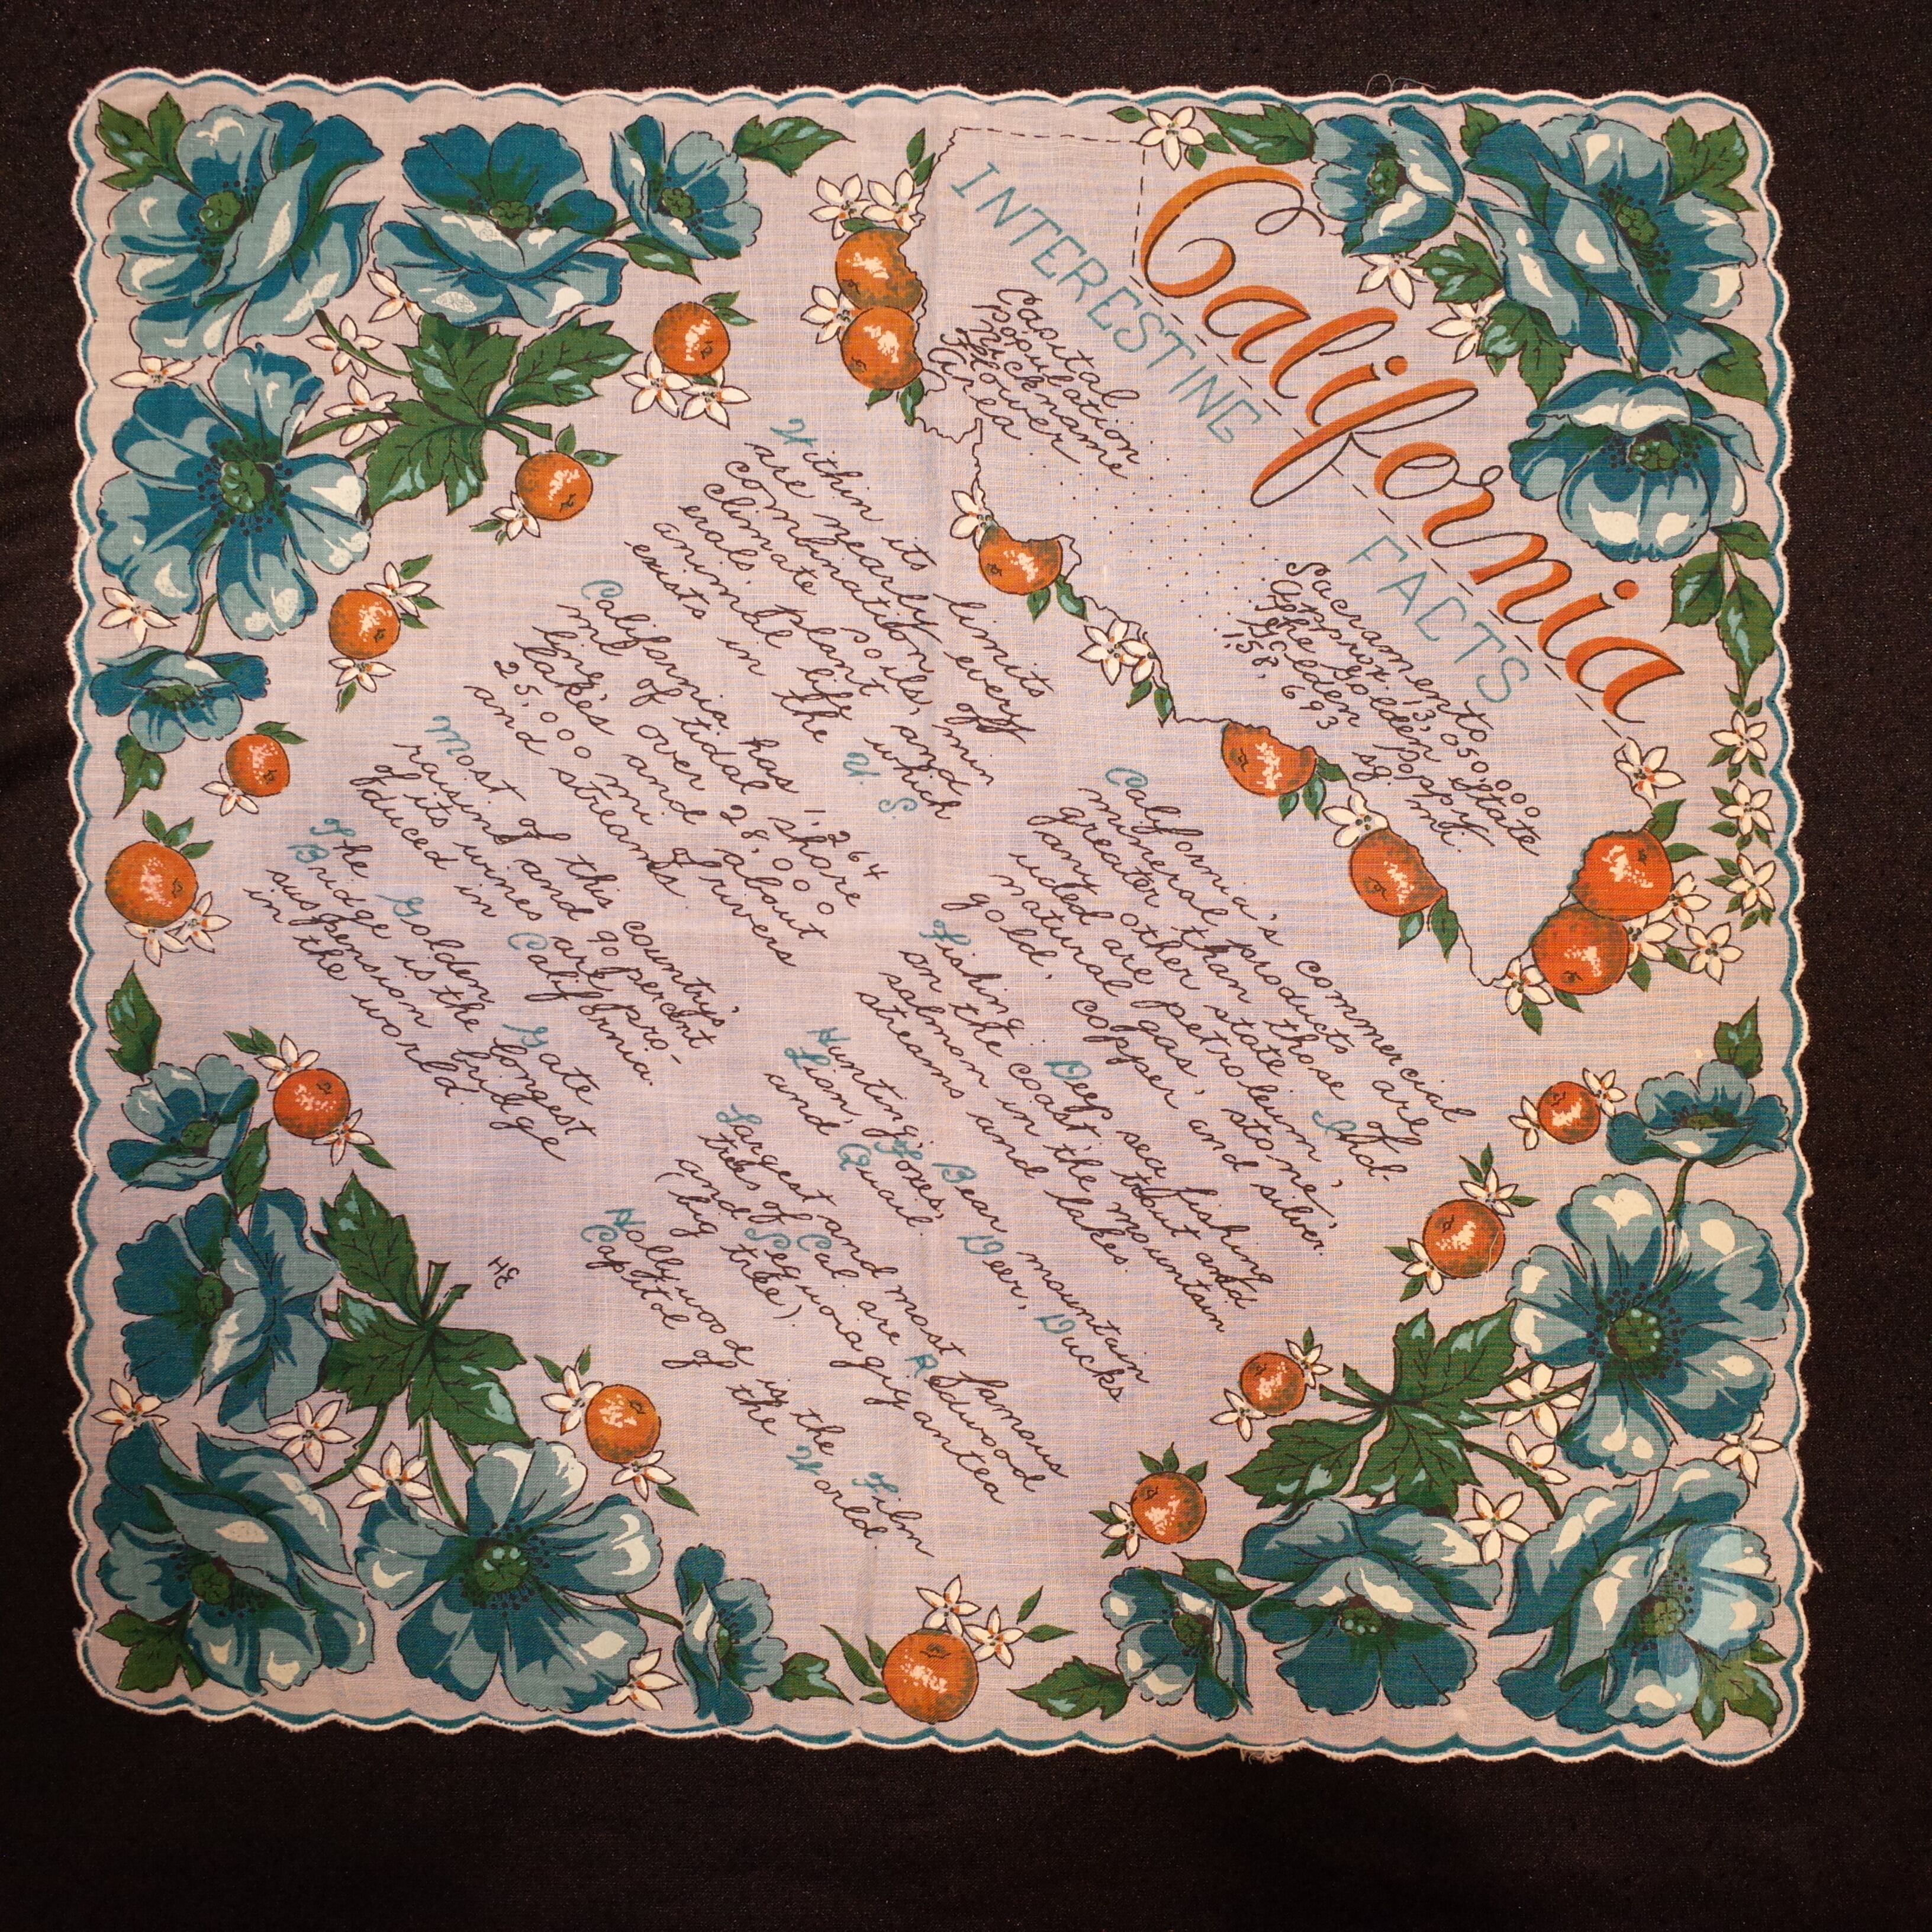 INTERESTING
California
FACTS
Capital Sacramento
Population Approx. 13,050,000
Nickname The golden State
Flower Golden Poppy
Area 158,693 sq. mi.
Within its limits
are nearly every
combination of
climate, soils, min
erals, plant and
animal life which
exists in the U. S.
California has 1,264
mi. of tidal shore
line, over 28,000
lakes and about
25,000 mi of rivers
and streams.
Most of this country's
raising and 90 percent
of its wines are pro-
duced in California.
The Golden Gate
Bridge is the longest
suspension bridge
in the world.
California's commercial
mineral products are
greater than those of
any other state. Incl-
uded are petroleum,
natural gas, stone,
gold, copper and silver.
Fishing. Deep sea fishing
on the coast, trout and
salmon in the mountain
streams and lakes.
Hunting. Bear, mountain
Lion, Foxes, Deer, Ducks
and Quail.
Largest and most famous
trees of Cal. are Redwood
and Sequoia gigantea
(big tree).
Hollywood is the Film
Capitol of the World.